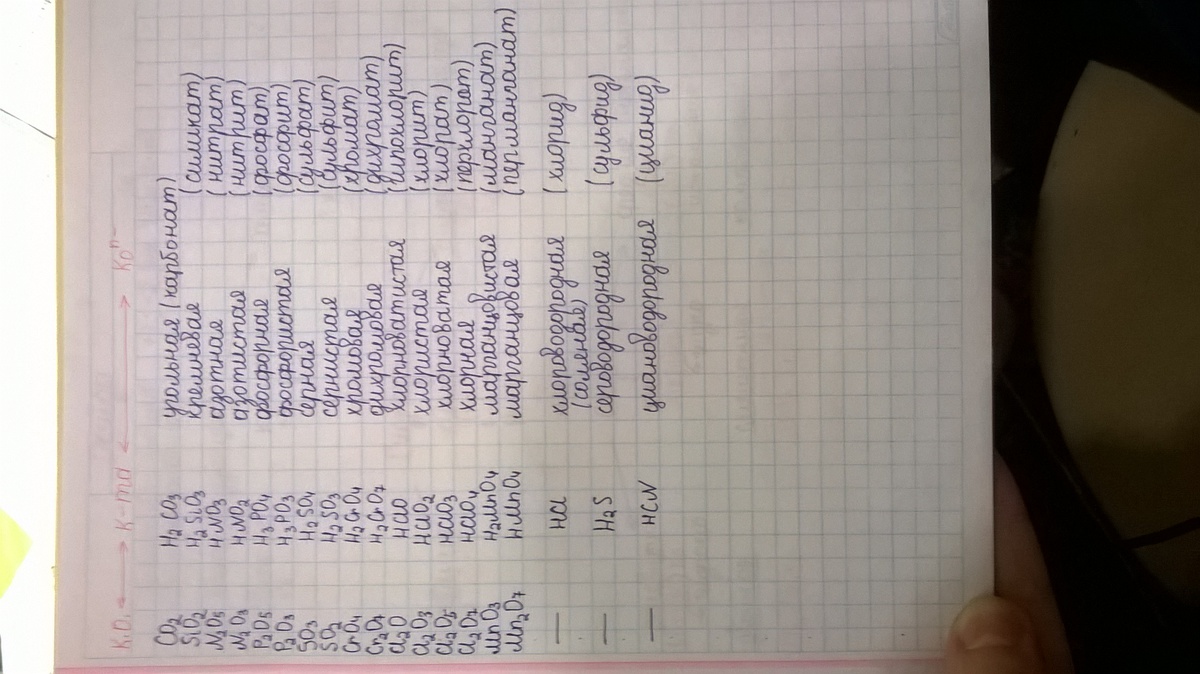 K.O. ⟷ K-та ⟷ K.Oⁿ⁻
CO₂ H₂CO₃ угольная (карбонат)
SiO₂ H₂SiO₃ кремневая (силикат)
N₂O₅ HNO₃ азотная (нитрат)
N₂O₃ HNO₂ азотистая (нитрит)
P₂O₅ H₃PO₄ фосфорная (фосфат)
P₂O₃ H₃PO₃ фосфористая (фосфит)
SO₃ H₂SO₄ серная (сульфат)
SO₂ H₂SO₃ сернистая (сульфит)
CrO₄ H₂CrO₄ хромовая (хромат)
Cr₂O₇ H₂CrO₇ дихромовая (дихромат)
Cl₂O HClO хлорноватистая (гипохлорит)
Cl₂O₃ HClO₂ хлористая (хлорит)
Cl₂O₅ HClO₃ хлорноватая (хлорат)
Cl₂O₇ HClO₄ хлорная (перхлорат)
MnO₃ H₂MnO₄ марганцовистая (манганат)
Mn₂O₇ HMnO₄ марганцовая (перманганат)
— HCl хлороводородная (хлорид)
(соленая)
— H₂S сероводородная (сульфид)
— HCN циановодородная (цианид)